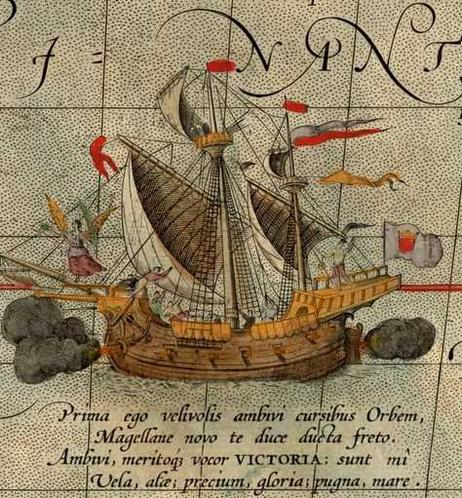 J = NANT
Prima ego velivolis ambivi cursibus Orbem,
Magellane novo te duce ducta freto.
Ambivi, meritoq; vocor VICTORIA: sunt mî
Vela, alæ; precium, gloria; pugna, mare.